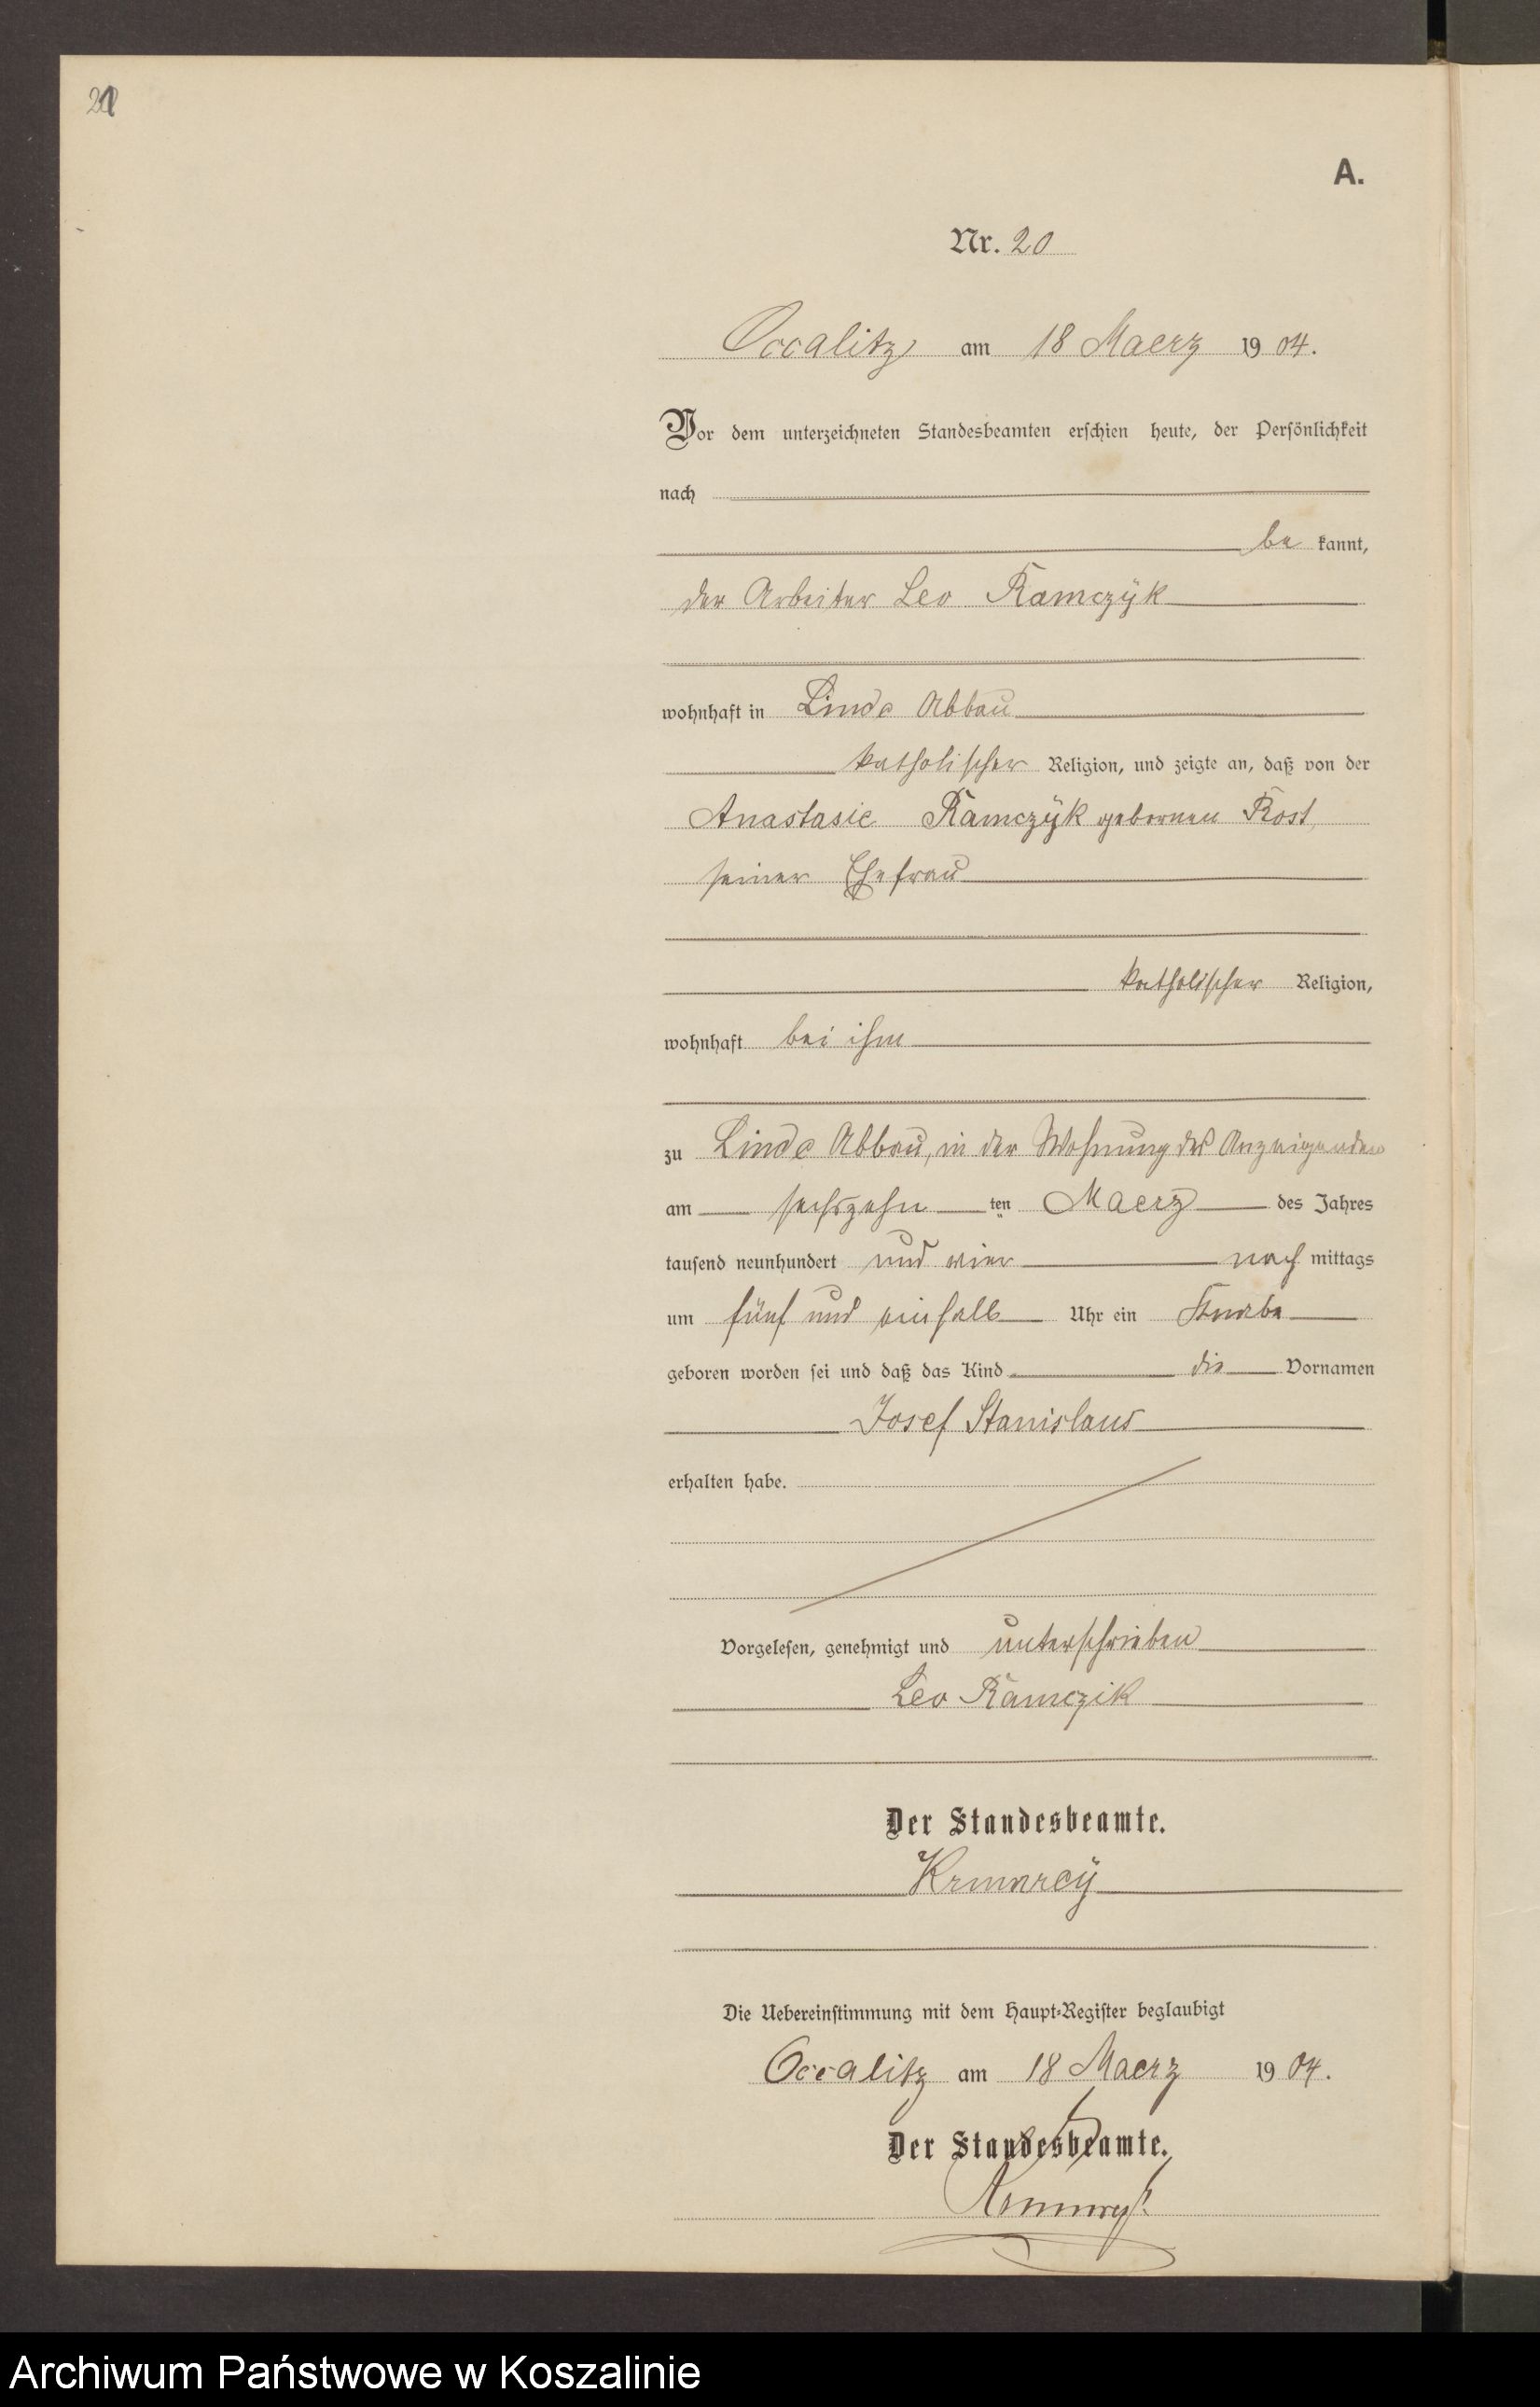 A.
Nr. 20
Occalitz am 18 Maerz 1904.
Vor dem unterzeichneten Standesbeamten erschien heute, der Persönlichkeit
nach
be kannt,
der Arbeiter Leo Ramczÿk
wohnhaft in Linde Abbau
katholischer Religion, und zeigte an, daß von der
Anastasie Ramczÿk gebornen Rost,
seiner Ehefrau
katholischer Religion,
wohnhaft bei ihm
zu Linde Abbau, in der Wohnung des Anzeigenden
am sechszehn ten Maerz des Jahres
tausend neunhundert und vier nach mittags
um fünf und einhalb Uhr ein Knabe
geboren worden sei und daß das Kind die Vornamen
Josef Stanislaus
erhalten habe.
Vorgelesen, genehmigt und unterschrieben
Leo Ramczik
Der Standesbeamte.
Die Uebereinstimmung mit dem Haupt-Register beglaubigt
Occalitz am 18 Maerz 1904.
Der Standesbeamte.
Archiwum Państwowe w Koszalinie